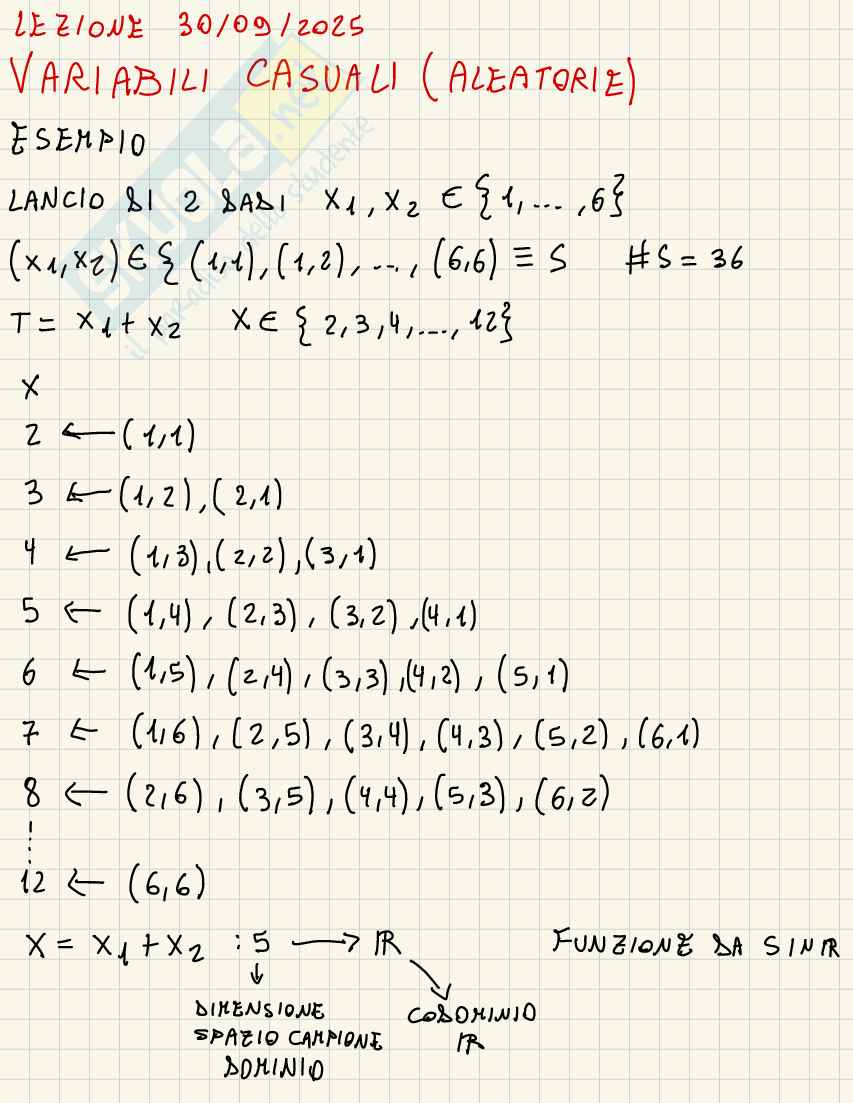 LEZIONE 30/09/2025
VARIABILI CASUALI (ALEATORIE)
ESEMPIO
LANCIO DI 2 DADI X1, X2 ∈ {1, ... ,6}
(X1,X2) ∈ { (1,1), (1,2), ..., (6,6) ≡ S #S = 36
T = X1 + X2 X ∈ { 2,3,4,..., 12}
X
2 ← (1,1)
3 ← (1,2), (2,1)
4 ← (1,3), (2,2), (3,1)
5 ← (1,4), (2,3), (3,2), (4,1)
6 ← (1,5), (2,4), (3,3), (4,2), (5,1)
7 ← (1,6), (2,5), (3,4), (4,3), (5,2), (6,1)
8 ← (2,6), (3,5), (4,4), (5,3), (6,2)
⋮
12 ← (6,6)
X = X1 + X2 : S → IR FUNZIONE DA S IN IR
↓ ↘
DIMENSIONE
SPAZIO CAMPIONE
DOMINIO
CODOMINIO
IR
SKUOLA.net
il paradiso dello studente